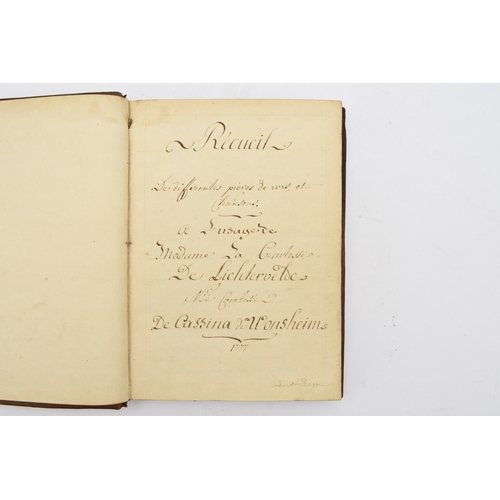 Recueil
De differentes pieces de vers, et
Chansons,
A L'usage de
Madame La Comtesse
De Lichtervelde
Née Comtesse
De Cassina de Wonsheim
1777